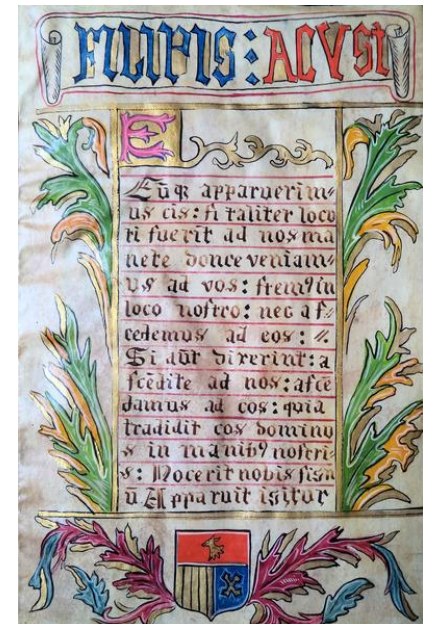 FILIPIS : ACVSt
E
Cūqȝ apparuerim⸗
us eis: si taliter loco
ti fuerīt ad nos ma
nete donec veniam⸗
us ad vos: stemꝰ in
loco nostro: nec a s⸗
cedemus ad eos :
Si aūt dixerint: a
scēdite ad nos: asce
damus ad eos: quia
tradidit eos domino
s in manibꝰ nostri⸗
s: Hoc erit nobis sign
ū Apparuit igitur